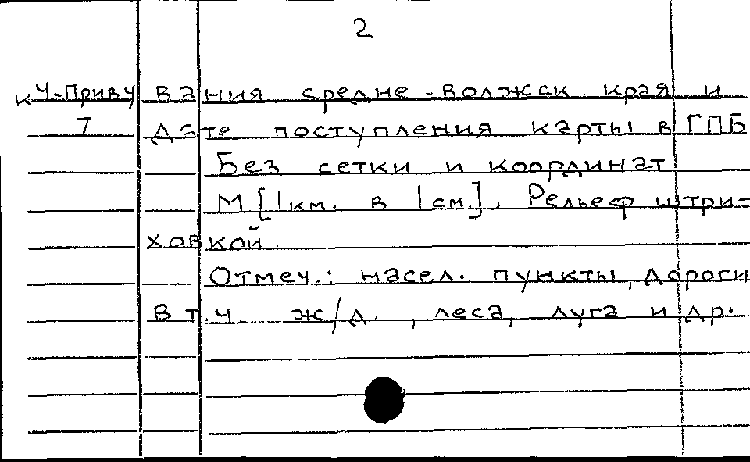 2
К Ч-Приву вания средне-волжск края и
7 дате поступления карты в ГПБ
Без сетки и координат
М [1 км. в 1 см]. Рельеф штри-
ховкой.
Отмеч.: насел. пункты, дороги
в т.ч. ж/д., леса, луга и др.